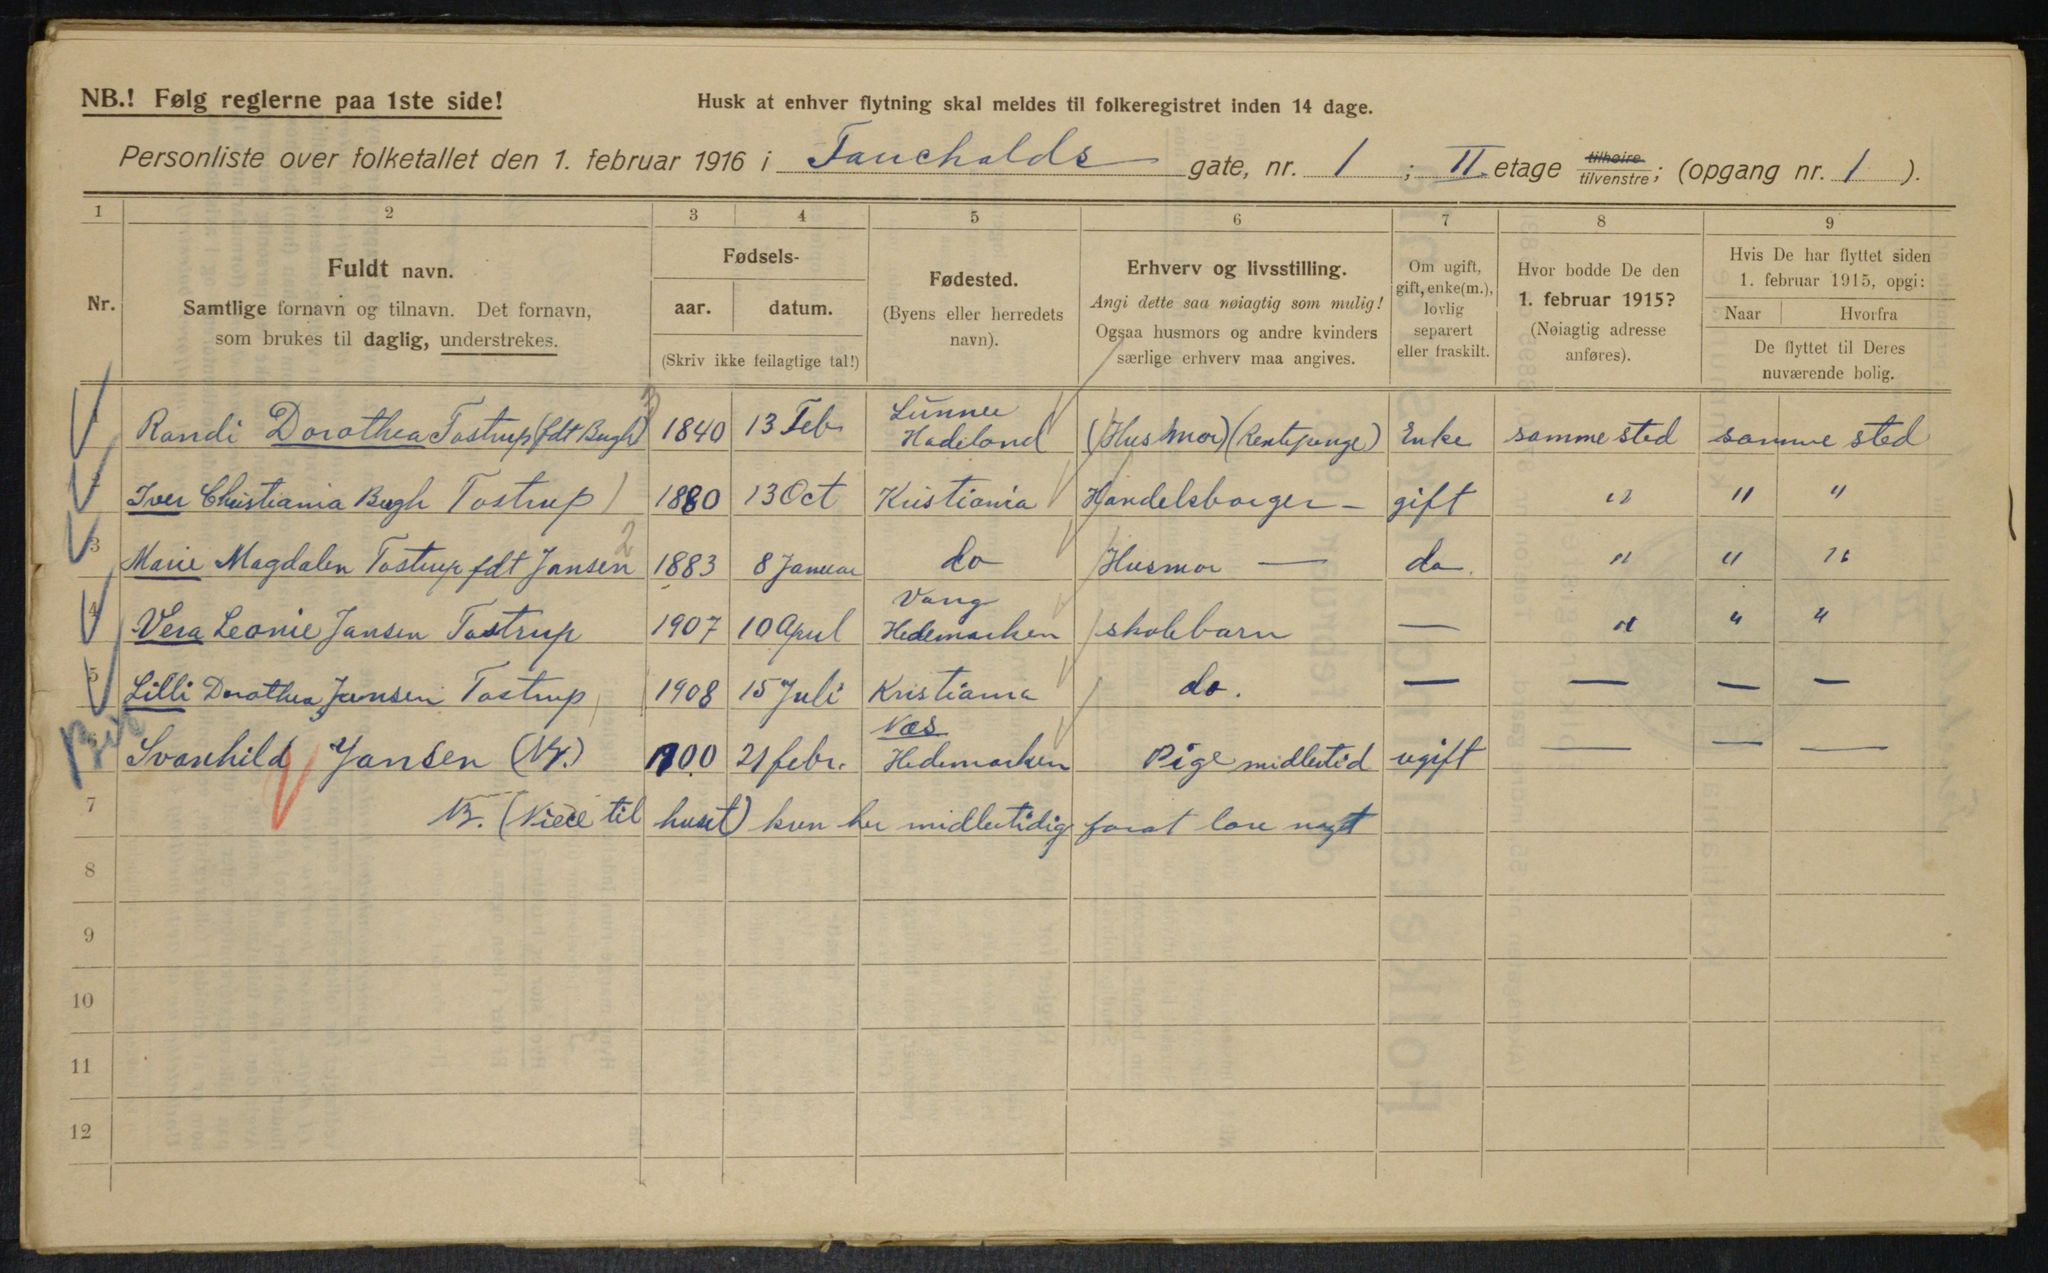 NB.! Følg reglerne paa 1ste side!
Husk at enhver flytning skal meldes til folkeregistret inden 14 dage.
Personliste over folketallet den 1. februar 1916 i Fauchalds gate, nr. 1 ; II etage tilhøire tilvenstre; (opgang nr. 1 ).
1 2 3 4 5 6 7 8 9
Nr.
Fuldt navn.
Samtlige fornavn og tilnavn. Det fornavn,
som brukes til daglig, understrekes.
Fødsels-
aar. datum.
(Skriv ikke feilagtige tal!)
Fødested.
(Byens eller herredets
navn).
Erhverv og livsstilling.
Angi dette saa nøiagtig som mulig!
Ogsaa husmors og andre kvinders
særlige erhverv maa angives.
Om ugift,
gift, enke(m.),
lovlig
separert
eller fraskilt.
Hvor bodde De den
1. februar 1915?
(Nøiagtig adresse
anføres).
Hvis De har flyttet siden
1. februar 1915, opgi:
Naar Hvorfra
De flyttet til Deres
nuværende bolig.
Randi Dorothea Tostrup (fdt Bugh) 3 1840 13 Feb Lunner Hadeland (Husmor) (Rentepenge) Enke samme sted samme sted
Iver Christiania Bugh Tostrup 1 1880 13 Oct Kristiania Handelsborger – gift " " "
3 Marie Magdalen Tostrup fdt Jansen 2 1883 8 Januar do Husmor — do. " " "
4 Vera Leonie Jansen Tostrup 1907 10 April Vang Hedemarken skolebarn — " " "
5 Lilli Dorothea Jansen Tostrup 1908 15 Juli Kristiania do. — — — —
6 Svanhild Jansen 1900 21 febr. Næs Hedemarken Pige midlertid ugift — — —
7 NB. (Niece til huset) kun her midlertidig forat lære nogt
8
9
10
11
12